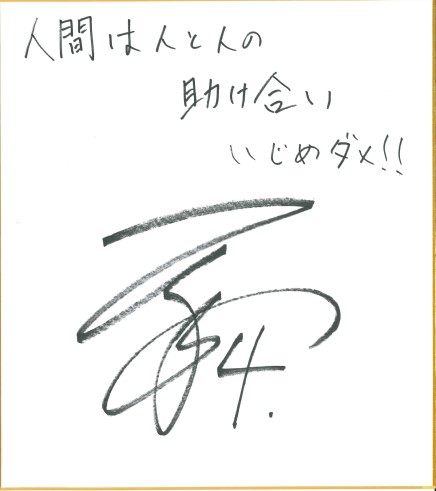 人間は人と人の
助け合い
いじめダメ!!
4.